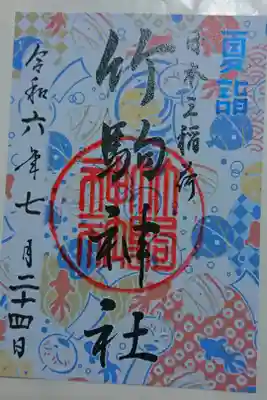 夏詣
日本三稲荷
竹駒神社
令和六年七月二十四日